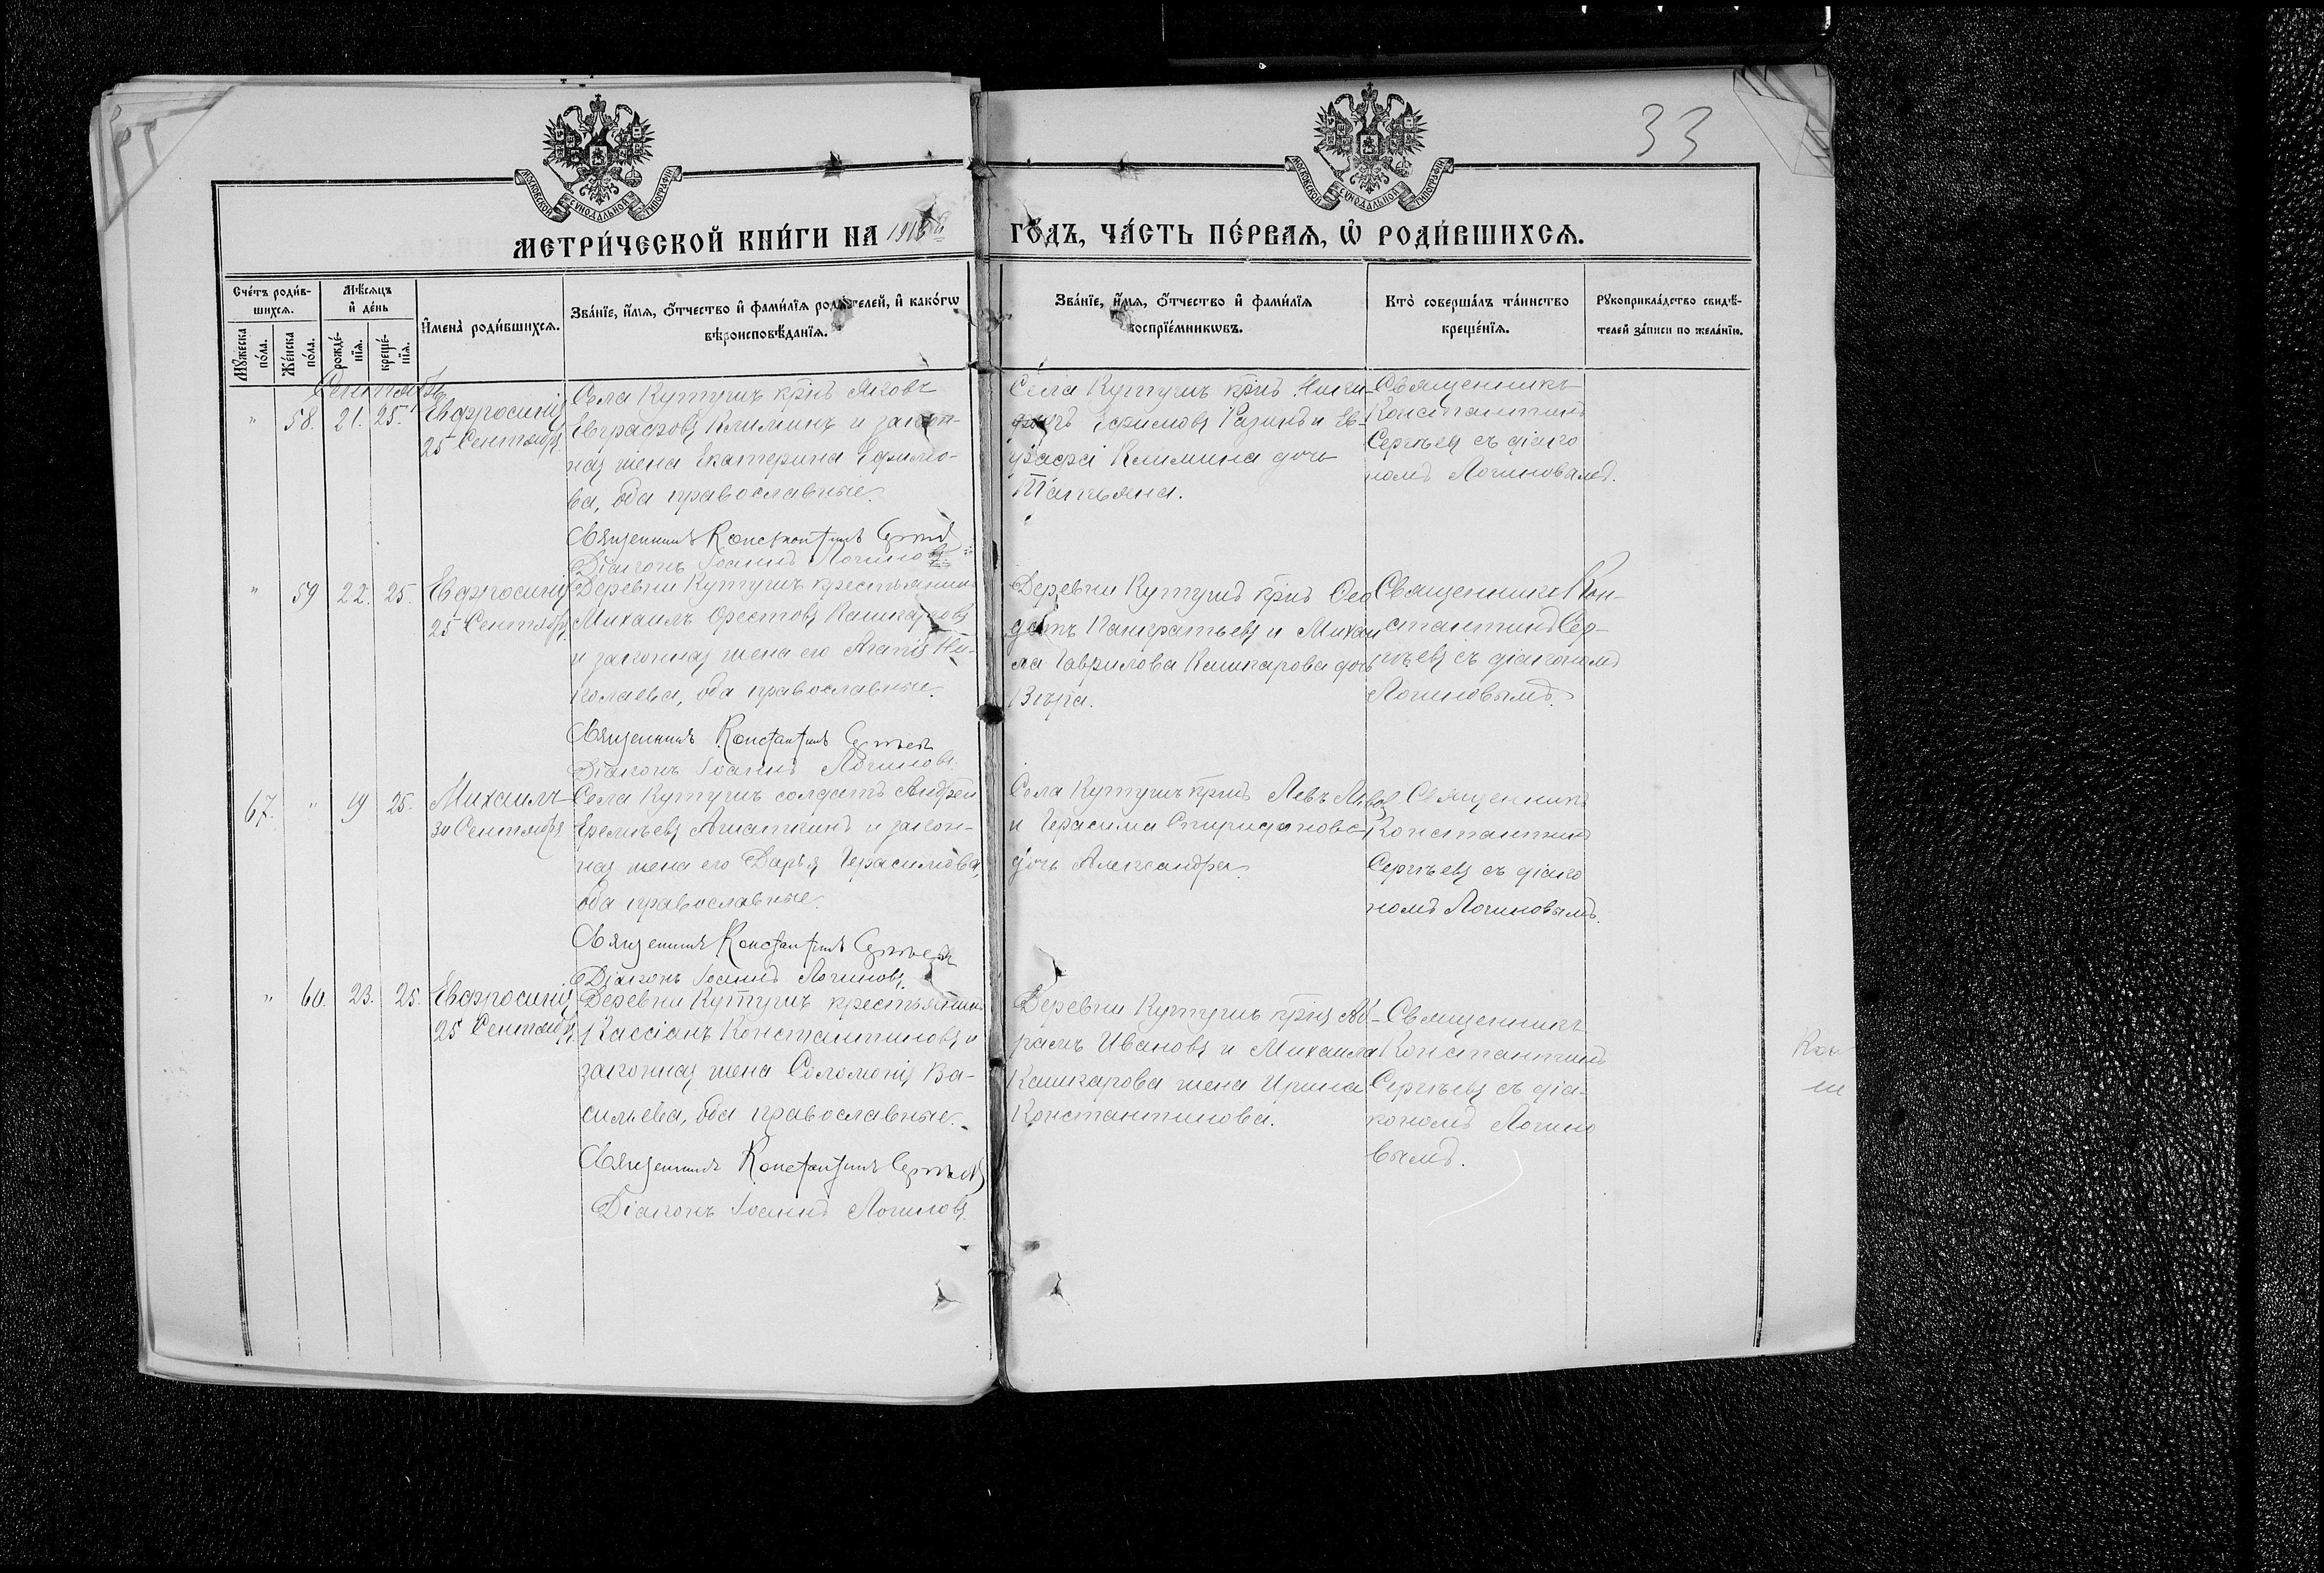 33
МОСКОВСКОЙ СѴНОДАЛЬНОЙ ТИПОГРАФІИ
МОСКОВСКОЙ СѴНОДАЛЬНОЙ ТИПОГРАФІИ
МЕТРИ́ЧЕСКОЙ КНИ́ГИ НА 1916 й ГО́ДЪ, ЧА́СТЬ ПЕ́РВАЯ, Ѡ РОДИ́ВШИХСЯ.
Сче́тъ роди́в-
шихся.
Мѣ́сяцъ
и де́нь
Мꙋ́жеска
по́ла.
Же́нска
по́ла.
рожде́-
нїя.
креще́-
нїя.
И҆мена̀ роди́вшихся.
Зва́нїе, и҆́мя, ѻ҆́тчество и҆ фами́лїя роди́телей, и҆ како́гѡ
вѣроисповѣ́данїя.
Зва́нїе, и҆́мя, ѻ҆́тчество и҆ фами́лїя
воспрїе́мникѡвъ.
Кто̀ соверша́лъ та́инство
креще́нїя.
Рꙋкоприкла́дство свидѣ́-
телей за́писи по жела́нїю.
Сентябрь
" 58. 21. 25. Евфросинія
25 Сентября
Села Кутушъ крнъ Яковъ
Евграфовъ Климинъ и закон-
ная жена Екатерина Ефимо-
ва, оба православные.
Священникъ Константинъ Сергѣевъ
Діаконъ Іоаннъ Логиновъ
Села Кутушъ крнъ Ники-
форъ Ефимовъ Разинъ и Ев-
графа Климина дочь
Татьяна.
Священникъ
Константинъ
Сергѣевъ съ діако
номъ Логиновымъ.
" 59 22. 25. Евфросинія
25 Сентября
Деревни Кутушъ крестьянинъ
Михаилъ Орестовъ Кашкаровъ
и законная жена его Аганія Ни-
колаева, оба православные.
Священникъ Константинъ Сергѣевъ
Діаконъ Іоаннъ Логиновъ.
Деревни Кутушъ крнъ Ѳео
дотъ Панкратьевъ и Михаи
ла Гаврилова Кашкарова дочь
Вѣра.
Священникъ Кон-
стантинъ Сер-
гѣевъ съ діакономъ
Логиновымъ.
67. " 19 25. Михаилъ
30 Сентября
Села Кутушъ солдатъ Андрей
законная жена его Дарья Герасимова,
оба православные.
Священникъ Константинъ Сергѣевъ
Діаконъ Іоаннъ Логиновъ.
Села Кутушъ крнъ Левъ
и Герасима Спиридонова
дочь Александра.
Священникъ
Константинъ
Сергѣевъ съ діако
номъ Логиновымъ.
" 60. 23. 25. Евфросинія
25 Сентября
Деревни Кутушъ крестьянинъ
Кассіанъ Константиновъ и
законная жена Соломонія Ва-
сильева, оба православные.
Священникъ Константинъ Сергѣевъ
Діаконъ Іоаннъ Логиновъ.
Деревни Кутушъ крнъ Аб-
рамъ Ивановъ и Михаила
Кашкарова жена Ирина
Константинова.
Священникъ
Константинъ
Сергѣевъ съ діа-
кономъ Логино
вымъ.